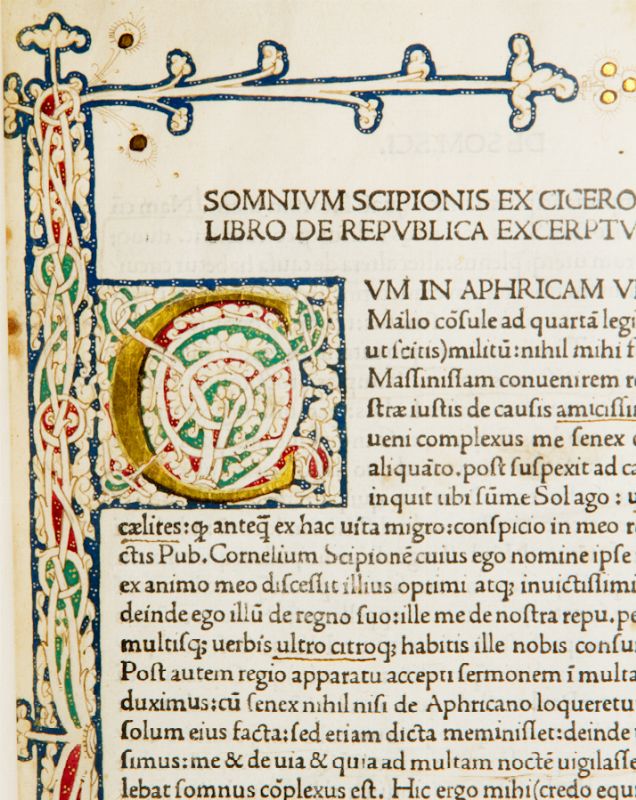 SOMNIVM SCIPIONIS EX CICERO
LIBRO DE REPVBLICA EXCERPTV
CVM IN APHRICAM VE
Málio cõsule ad quartã legi
ut scitis)militũ:nihil mihi f
Massinissam conuenirem r
stræ iustis de causis amicissim
ueni complexus me senex
aliquãto.post suspexit ad cæ
inquit tibi sũme Sol ago : u
cælites:ꝙ anteq̃ ex hac uita migro:conspicio in meo r
ctis Pub.Cornelium Scipionẽ cuius ego nomine ipse
ex animo meo discessit illius optimi atq; inuictissimi
deinde ego illũ de regno suo:ille me de nostra repu.pe
multisq; uerbis ultro citroq; habitis ille nobis consu
Post autem regio apparatu accepti sermonem ĩ multa
duximus:cũ senex nihil nisi de Aphricano loqueretu
solum eius facta:sed etiam dicta meminisset:deinde
simus:me & de uia & quia ad multam noctẽ uigilasse
lebat somnus cõplexus est. Hic ergo mihi(credo equi